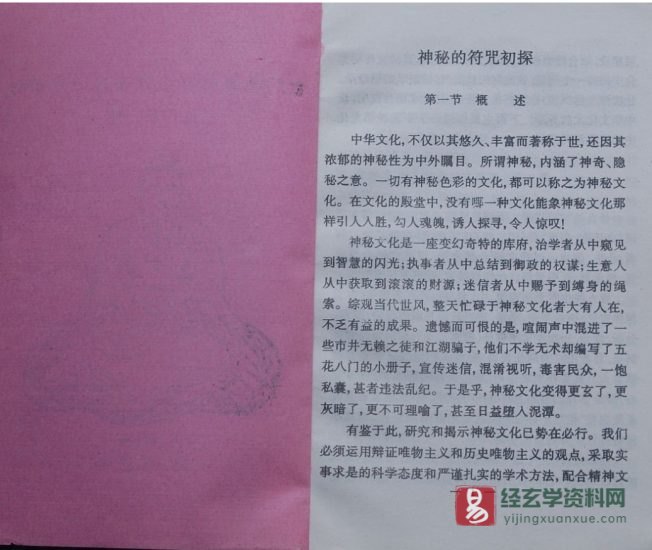 神秘的符咒初探
第一节 概 述
中华文化,不仅以其悠久、丰富而著称于世,还因其
浓郁的神秘性为中外瞩目。所谓神秘,内涵了神奇、隐
秘之意。一切有神秘色彩的文化,都可以称之为神秘文
化。在文化的殿堂中,没有哪一种文化能象神秘文化那
样引人入胜,勾人魂魄,诱人探寻,令人惊叹!
神秘文化是一座变幻奇特的库府,治学者从中窥见
到智慧的闪光;执事者从中总结到御政的权谋;生意人
从中获取到滚滚的财源;迷信者从中赐予到缚身的绳
索。综观当代世风,整天忙碌于神秘文化者大有人在,
不乏有益的成果。遗憾而可恨的是,喧闹声中混进了一
些市井无赖之徒和江湖骗子,他们不学无术却编写了五
花八门的小册子,宣传迷信,混淆视听,毒害民众,一饱
私囊,甚者违法乱纪。于是乎,神秘文化变得更玄了,更
灰暗了,更不可理喻了,甚至日益堕入泥潭。
有鉴于此,研究和揭示神秘文化已势在必行。我们
必须运用辩证唯物主义和历史唯物主义的观点,采取实
事求是的科学态度和严谨扎实的学术方法,配合精神文
易 经玄学资料网
yijingxuanxue.com